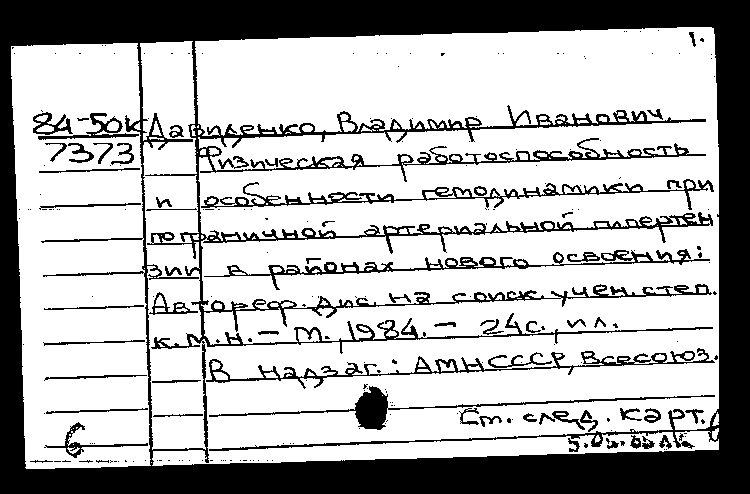 1.
84-50К Давиденко, Владимир Иванович.
7373 Физическая работоспособность
и особенности гемодинамики при
пограничной артериальной гипертен-
зии в районах нового освоения:
Автореф. дис. на соиск. учен. степ.
к.м.н. – М., 1984. – 24с., ил.
В надзаг.: АМНСССР, Всесоюз.
См. след. карт.
6